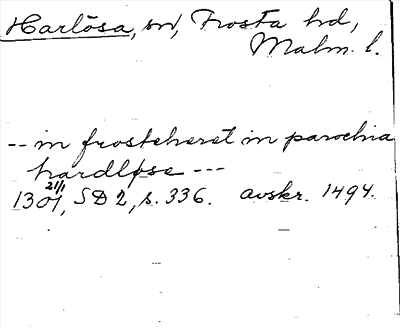 Harlösa, sn, Frosta hd,
Malm. l.
-- in frosteheret in parochia
hardløse ---
21/1
1301, SD 2, s. 336. avskr. 1494.